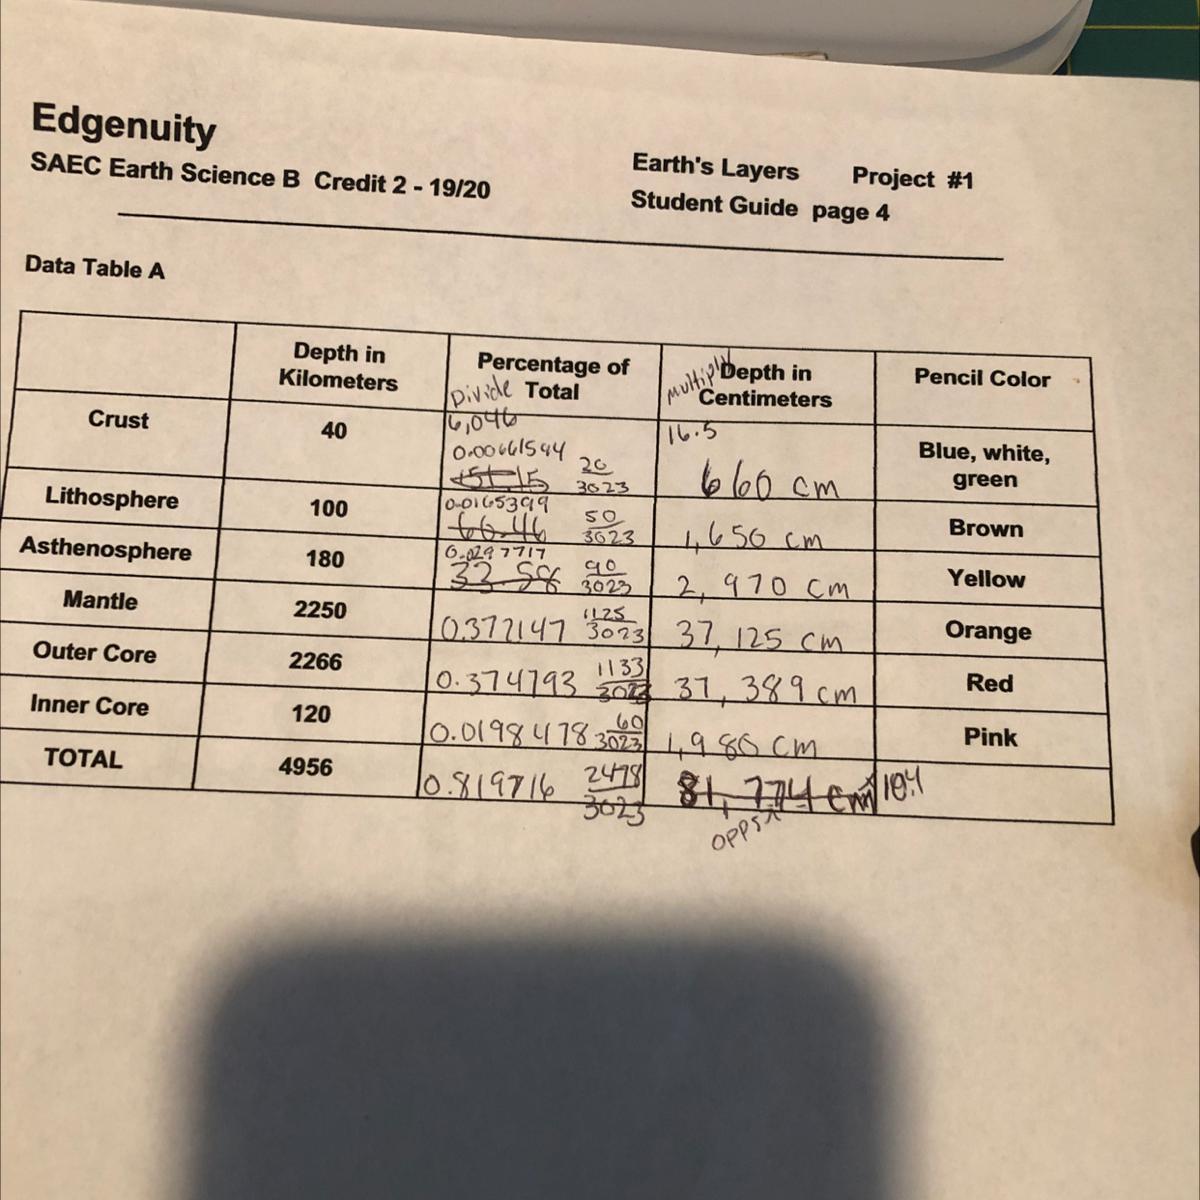 Edgenuity
SAEC Earth Science B Credit 2 - 19/20
Earth's Layers Project #1
Student Guide page 4
Data Table A
Depth in Kilometers
Percentage of Total
Divide
Depth in Centimeters
multiply
Pencil Color
Crust
40
6,046
0.00661594
20/3023
16.5
660 cm
Blue, white, green
Lithosphere
100
0.0165399
66.46
50/3023
1,650 cm
Brown
Asthenosphere
180
0.0297717
33.58
90/3023
2,970 cm
Yellow
Mantle
2250
0.372147 1125/3023
37,125 cm
Orange
Outer Core
2266
0.374793 1133/3023
37,389 cm
Red
Inner Core
120
0.0198478 60/3023
1,980 cm
Pink
TOTAL
4956
0.819716 2478/3023
81,774 cm
opps